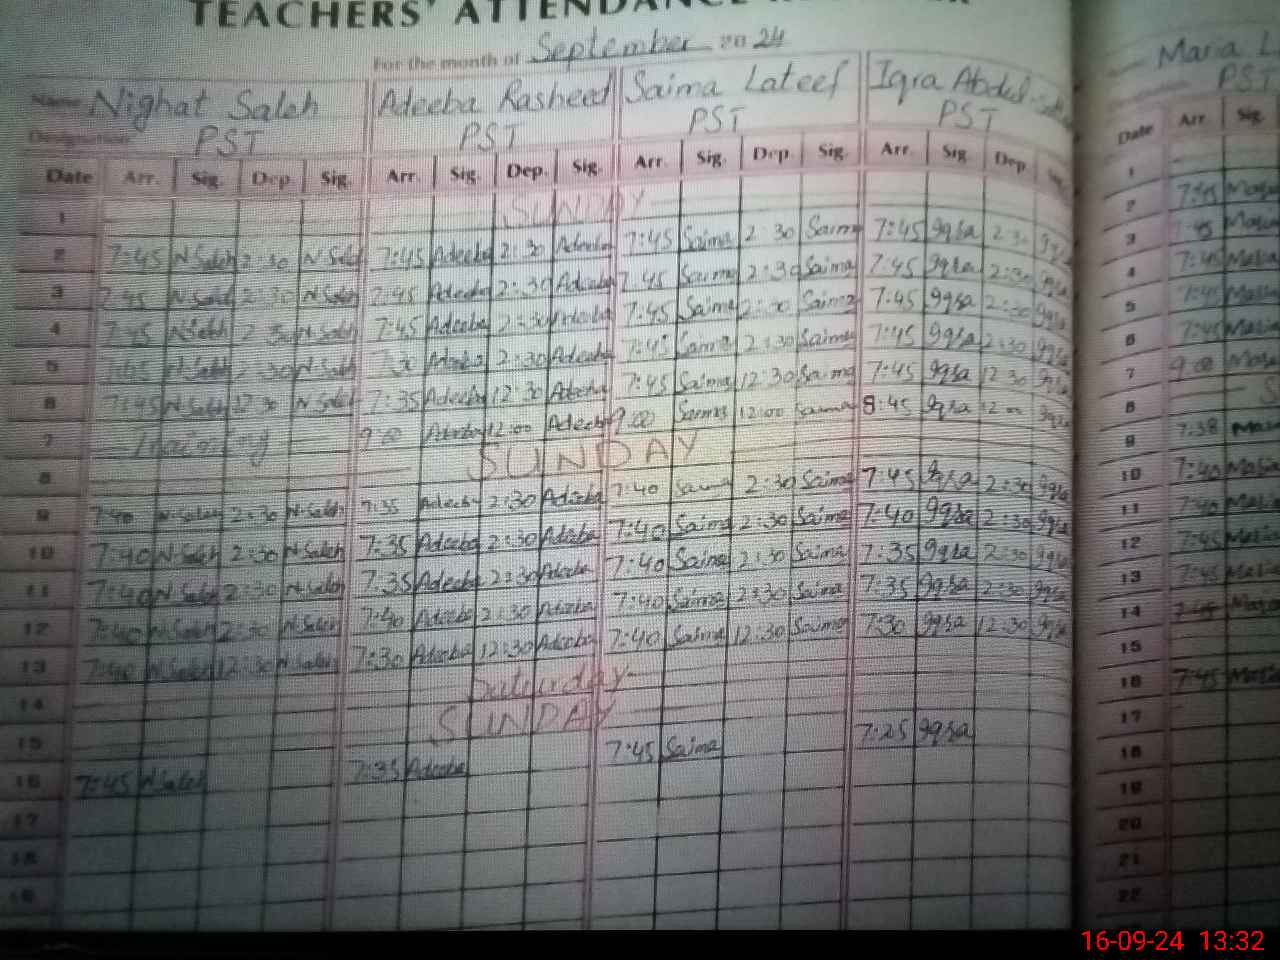 TEACHERS' ATTENDANCE
For the month of September 2024
Name Nighat Saleh Adeeba Rasheed Saima Lateef Iqra Abdul Maria L
Designation PST PST PST PST PST
Date Arr. Sig. Dep. Sig. Arr. Sig. Dep. Sig. Arr. Sig. Dep. Sig. Arr. Sig. Dep. Sig. Date Arr. Sig.
1 SUNDAY 1
2 7:45 N Saleh 2:30 N Saleh 7:45 Adeeba 2:30 Adeeba 7:45 Saima 2:30 Saima 7:45 Iqra 2:30 Iqra 2 7:45 Maria
3 7:45 N Saleh 2:30 N Saleh 7:45 Adeeba 2:30 Adeeba 7:45 Saima 2:30 Saima 7:45 Iqra 2:30 Iqra 3 7:45 Maria
4 7:45 N Saleh 2:30 N Saleh 7:45 Adeeba 2:30 Adeeba 7:45 Saima 2:30 Saima 7:45 Iqra 2:30 Iqra 4 7:45 Maria
5 7:45 N Saleh 2:30 N Saleh 7:30 Adeeba 2:30 Adeeba 7:45 Saima 2:30 Saima 7:45 Iqra 2:30 Iqra 5 7:45 Maria
6 7:45 N Saleh 12:30 N Saleh 7:35 Adeeba 12:30 Adeeba 7:45 Saima 12:30 Saima 7:45 Iqra 12:30 Iqra 6 7:45 Maria
7 Training 9:00 Adeeba 12:00 Adeeba 9:00 Saima 12:00 Saima 8:45 Iqra 12:00 Iqra 7 9:00 Maria
8 SUNDAY 8 S
9 7:40 N Saleh 2:30 N Saleh 7:35 Adeeba 2:30 Adeeba 7:40 Saima 2:30 Saima 7:45 Iqra 2:30 Iqra 9 7:38 Maria
10 7:40 N Saleh 2:30 N Saleh 7:35 Adeeba 2:30 Adeeba 7:40 Saima 2:30 Saima 7:40 Iqra 2:30 Iqra 10 7:40 Maria
11 7:40 N Saleh 2:30 N Saleh 7:35 Adeeba 2:30 Adeeba 7:40 Saima 2:30 Saima 7:35 Iqra 2:30 Iqra 11 7:40 Maria
12 7:40 N Saleh 2:30 N Saleh 7:40 Adeeba 2:30 Adeeba 7:40 Saima 2:30 Saima 7:35 Iqra 2:30 Iqra 12 7:45 Maria
13 7:40 N Saleh 12:30 N Saleh 7:30 Adeeba 12:30 Adeeba 7:40 Saima 12:30 Saima 7:30 Iqra 12:30 Iqra 13 7:45 Maria
14 Saturday 14 7:45 Maria
15 SUNDAY 15
16 7:45 N Saleh 7:35 Adeeba 7:45 Saima 7:25 Iqra 16 7:45 Maria
17 17
18 18
19 19
20
21
22
16-09-24 13:32